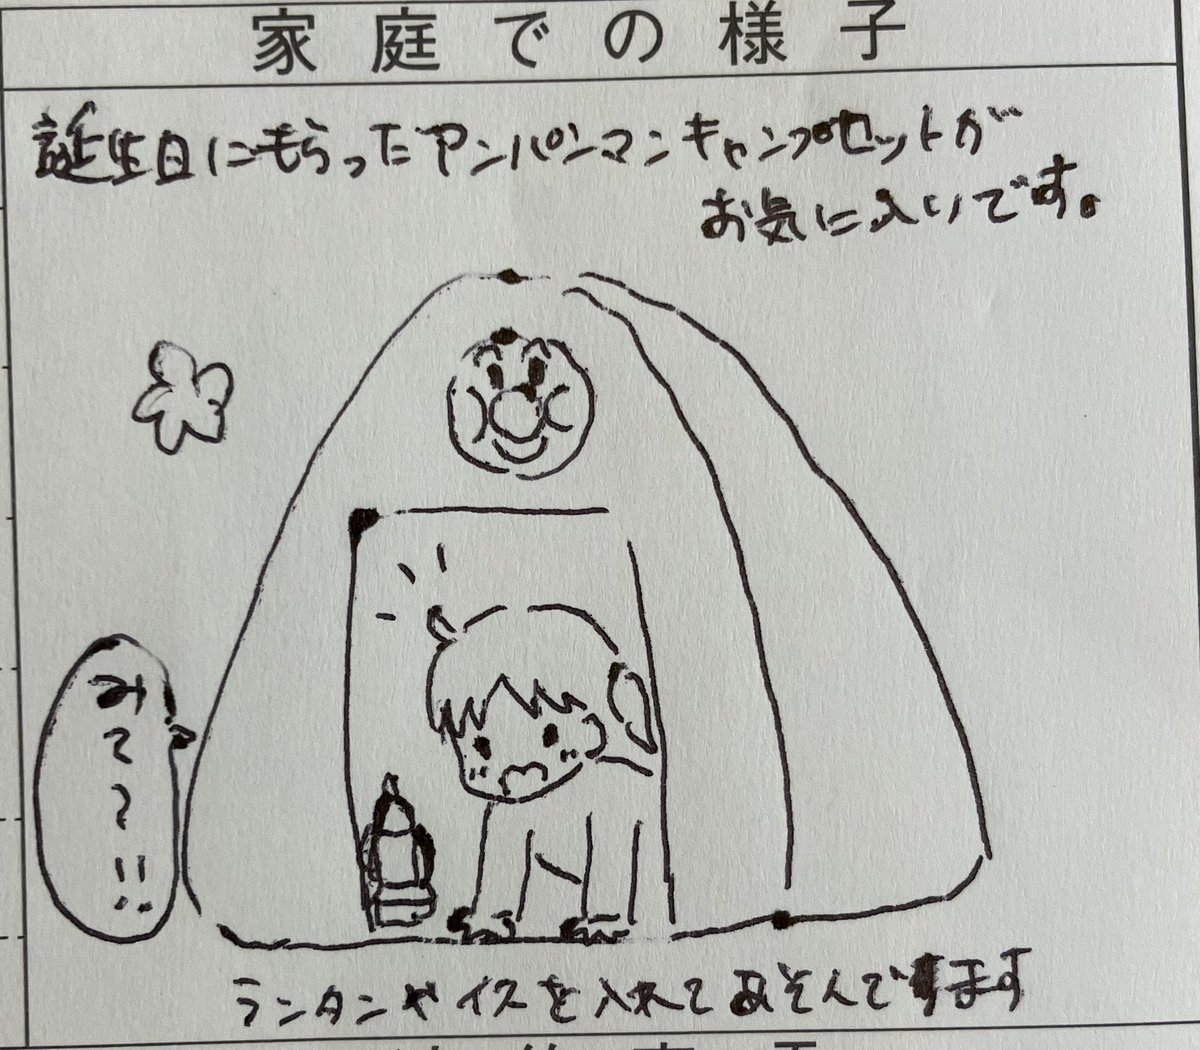 家庭での様子
誕生日にもらったアンパンマンキャンプセットが
お気に入りです。
みてて!!
ランタンやイスを入れてあそんでます